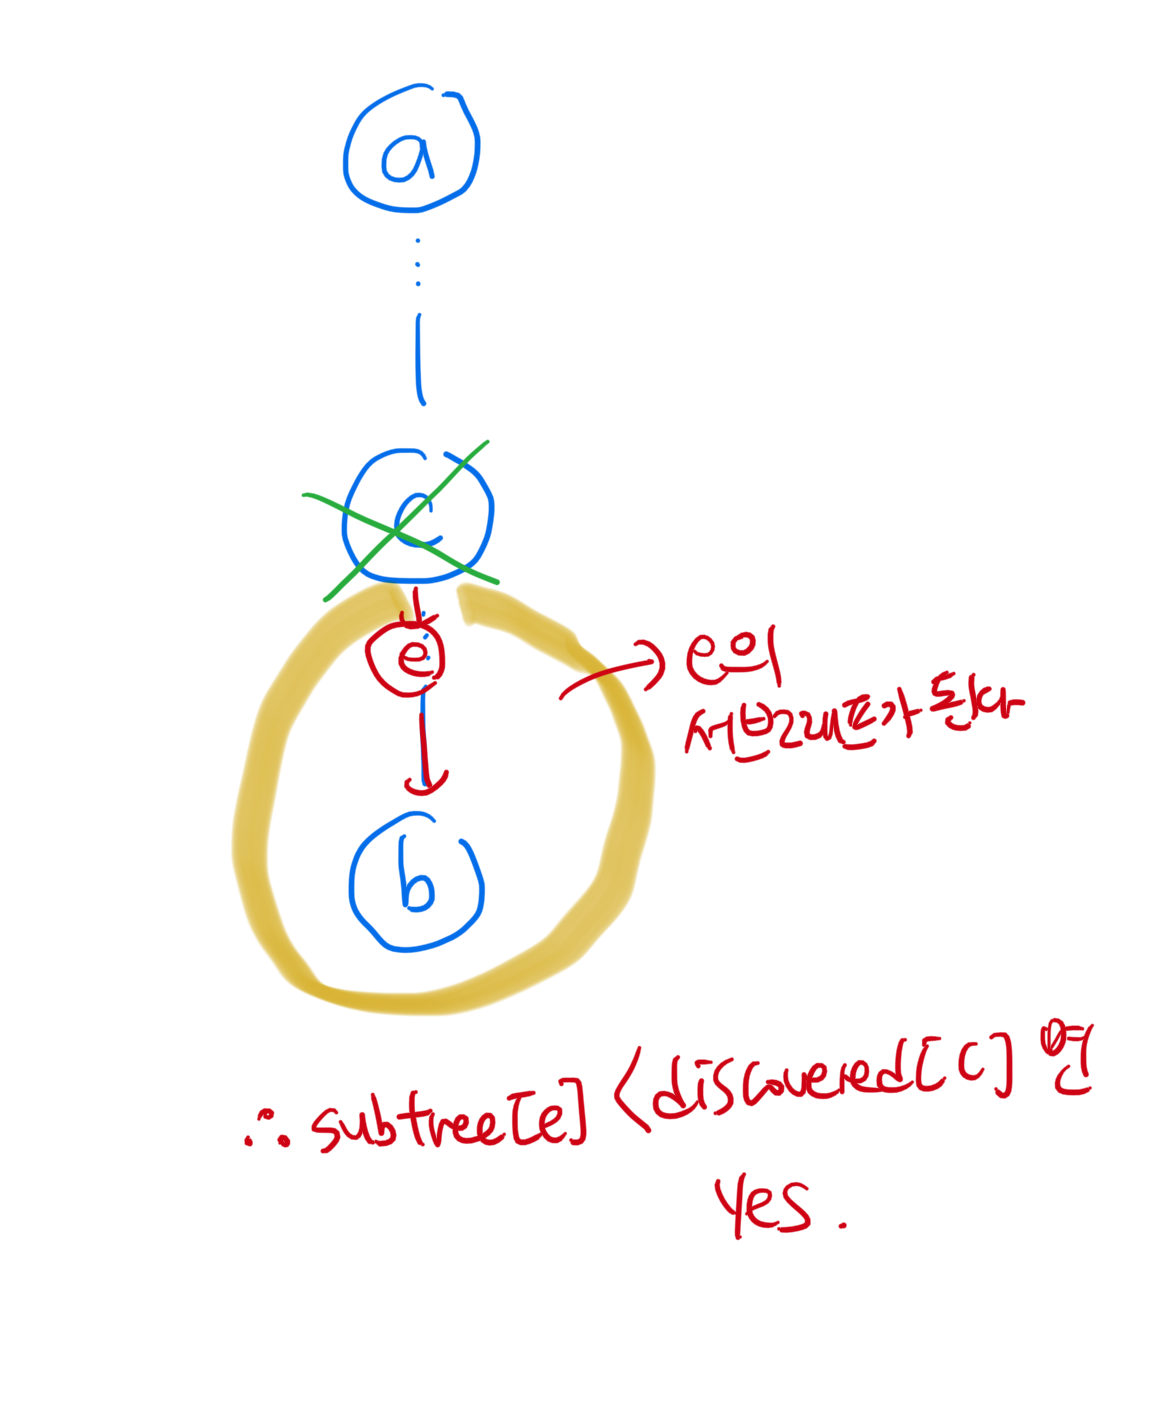 a
c
e
e의
서브그래프가 된다
b
∴ subtree[e] < discovered[c] 면
yes.